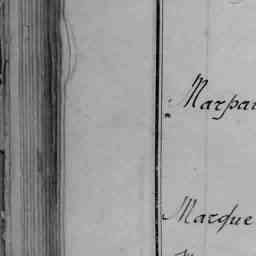 Marpau
Marque